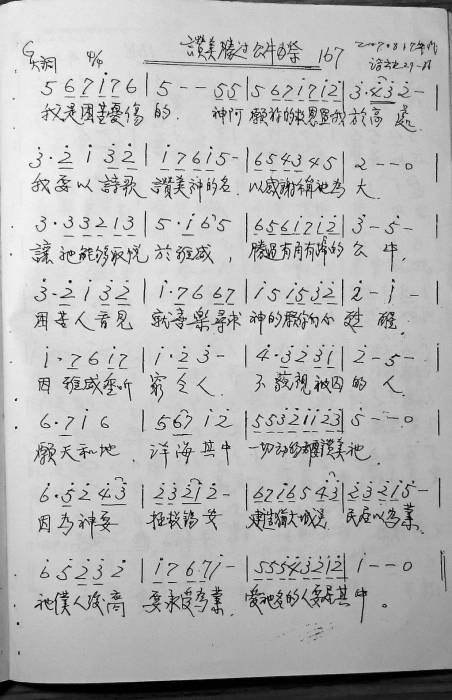 G大調 4/4 讚美勝過公牛為祭 167 2007.08.17
5 6 7 i 7 6 | 5 - - 5 5 | 5 6 7 i 7 i 2 | 3 · 4 3 2 - |
我是困苦憂傷的 神阿 願你的救恩置我於高處
3 · 2 i 3 2 | i 7 6 i 5 - | 6 5 4 3 4 5 | 2 - - 0
我要以詩歌 讚美神的名 以感謝稱祂為大
3 · 3 3 2 1 3 | 5 · i 6 5 | 6 5 6 i 7 i 2 | 3 - 5 -
讓祂能夠喜悅於牲 , 勝過有角有蹄的公牛,
3 · 2 i 3 2 | i · 7 6 6 7 | i 5 i 5 3 2 | 2 - i -
困苦人看見 就喜樂尋求神的願你們 甦醒
i · 7 6 i 7 | i · 2 3 - | 4 · 3 2 3 i | 2 - 5 - ·
因 垂听 窮乏人 不藐視被囚的人
6 · 7 i 6 | 5 6 7 i 2 | 5 5 3 2 i i 2 3 | 5 - - 0
願天和地 洋海其中 一切動的都讚美祂
6 · 5 2 4 3 | 2 3 2 i 2 - | 6 7 i 6 5 4 3 | 2 3 2 i 5 - |
因為神要 拯救錫安 建造猶大城邑 民居以為業
6 5 2 3 2 | i 7 6 · 7 i - | 5 5 5 4 3 2 i 2 | i - - 0
祂僕人後裔 要承受為業 愛祂名的人要居其中。